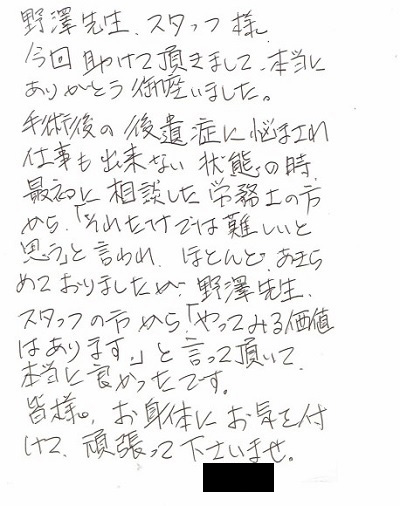 野澤先生、スタッフ様。
今回助けて頂きまして、本当に
ありがとう御座いました。
手術後の後遺症に悩まされ
仕事も出来ない状態の時、
最初に相談した労務士の方
から、「それだけでは難しいと
思う」と言われ、ほとんど、あきら
めておりましたが、野澤先生、
スタッフの方から「やってみる価値
はあります。」と言って頂いて、
本当に良かったです。
皆様。お身体にお気を付
けて、頑張って下さいませ。